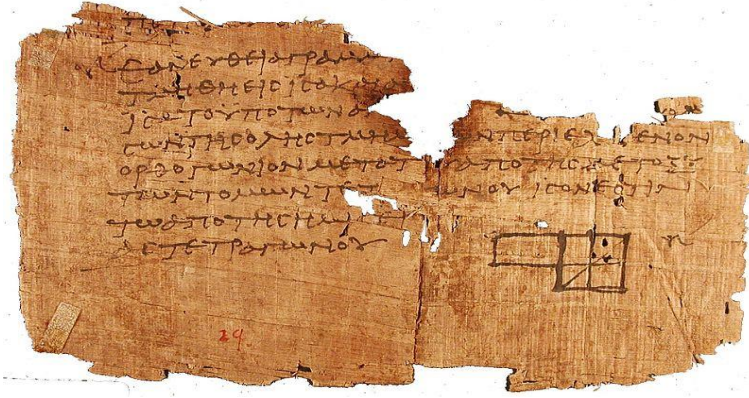 ΕΑΝ ΕΥΘΕΙΑ ΓΡΑΜΜ
ΤΜΗΘΗ ΕΙϹ ΙϹΑ ΚΑΙ Α
ΙϹΑ ΤΟ ΥΠΟ ΤΩΝ Α
ϹΩΝ ΤΗϹ ΟΛΗϹ ΤΜΗ ΩΝ ΠΕΡΙΕΧΟΜΕΝΟΝ
ΟΡΘΟΓΩΝΙΟΝ ΜΕΤΑ ΤΟΥ ΑΠΟ ΤΗϹ ΜΕΤΟΞΥ
ΤΩΝ ΤΟΜΩΝ ΤΕΤ ΓΩΝΟΥ ΙϹΟΝ ΕϹΤΙΝ
ΤΩ ΑΠΟ ΤΗϹ ΗΜΙϹΕΙ
ΑϹ ΤΕΤΡΑΓΩΝΟΥ
29.